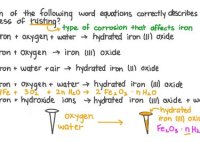 of the following word equations correctly describes
ess of rusting?
type of corrosion that affects iron
ron + oxygen + water → hydrated iron (II) oxide
ron + oxygen → iron (III) oxide
ron + water + air → hydrated iron (II) oxide
ron + oxygen + water → hydrated iron (III) oxide
Fe + 3O₂ + 2nH₂O → 2Fe₂O₃·nH₂O
ron + hydroxide ions → hydrated iron (III) oxide + wa
oxygen
water
hydrated
iron (III) oxide
Fe₂O₃·nH₂